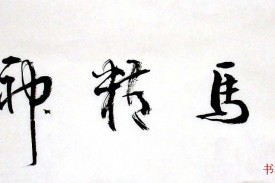 馬精神
书